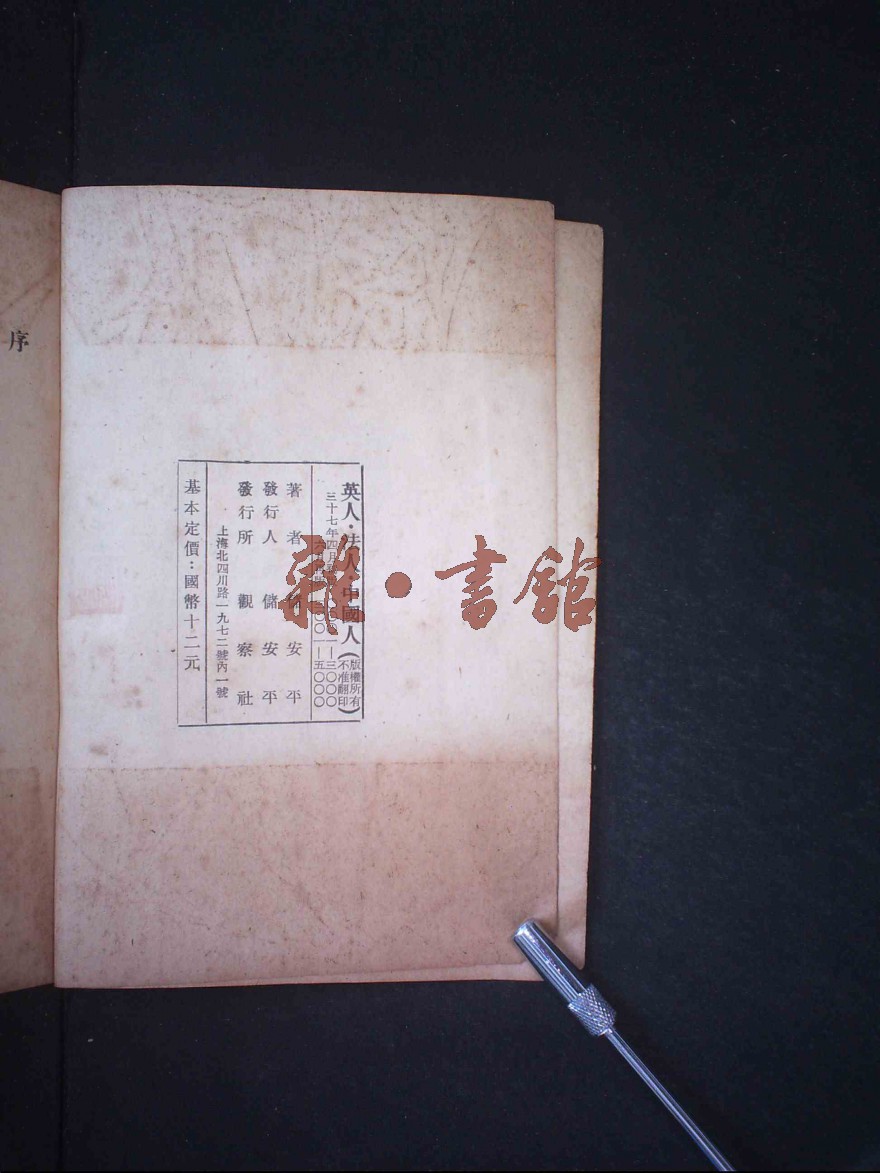 英人·法人·中國人
(版權所有
不准翻印)
三十七年四月
一—三〇〇〇
五〇〇〇
著者 儲安平
發行人 儲安平
發行所 觀察社
上海北四川路一九七二號內一號
基本定價：國幣十二元
序
雜·書館